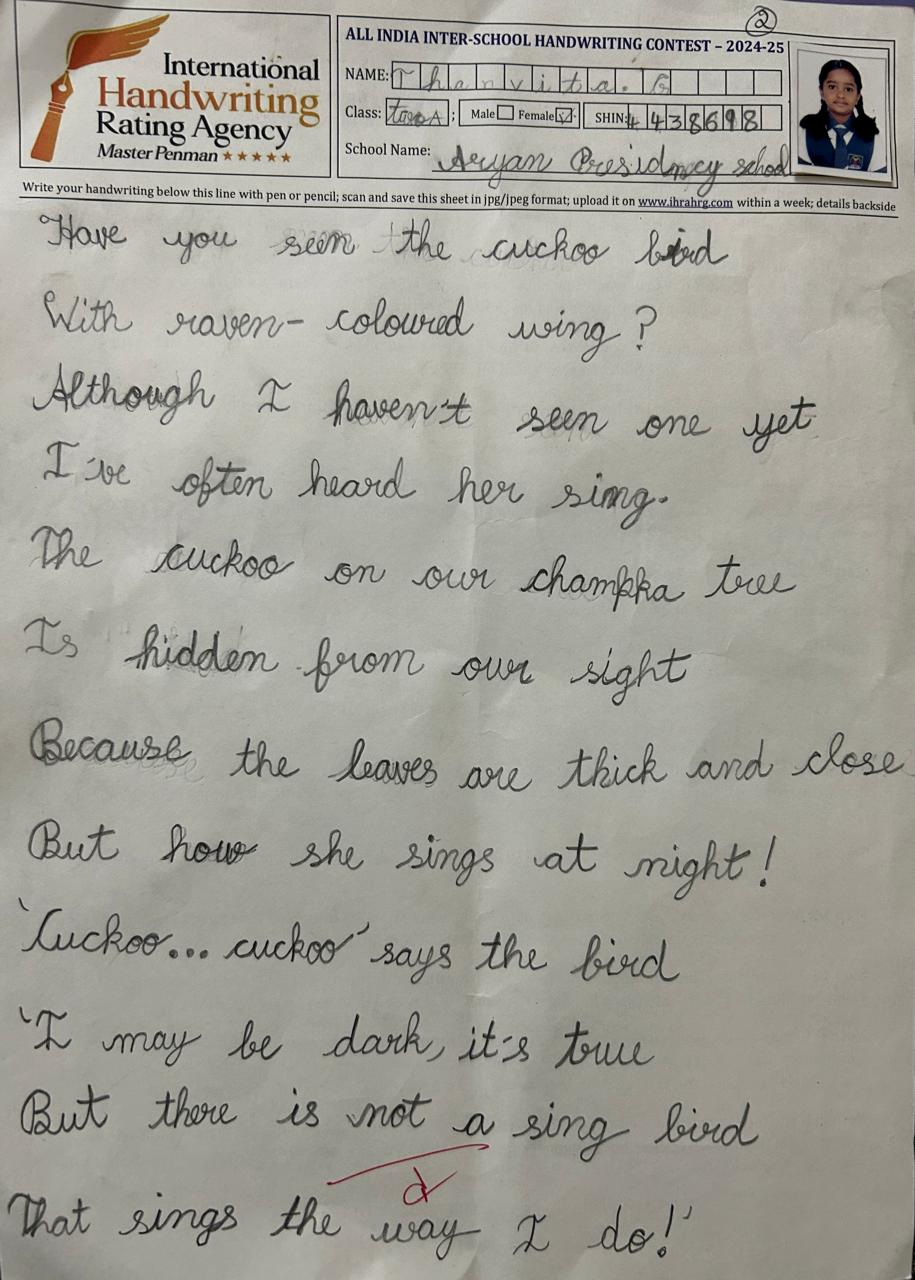 2
International
Handwriting
Rating Agency
Master Penman ★★★★★
ALL INDIA INTER-SCHOOL HANDWRITING CONTEST – 2024-25
NAME: Thanvita. G
Class: two A ; Male Female SHIN: 4438698
School Name: Aryan Presidncy school
Write your handwriting below this line with pen or pencil; scan and save this sheet in jpg/jpeg format; upload it on www.ihrahrg.com within a week; details backside
'Have you seen the cuckoo bird
With raven- coloured wing?
Although I haven't seen one yet
I've often heard her sing.
The cuckoo on our champka tree
Is hidden from our sight
Because the leaves are thick and close
But how she sings at night!
'Cuckoo... cuckoo' says the bird
'I may be dark, it's true
But there is not a sing bird
That sings the way I do!'